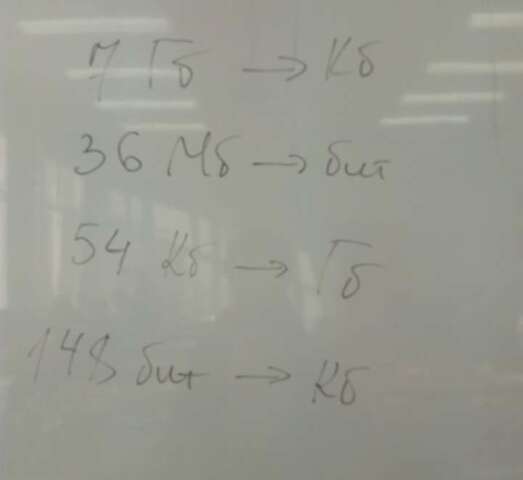 7 Гб → Кб
36 Мб → бит
54 Кб → Гб
148 бит → Кб